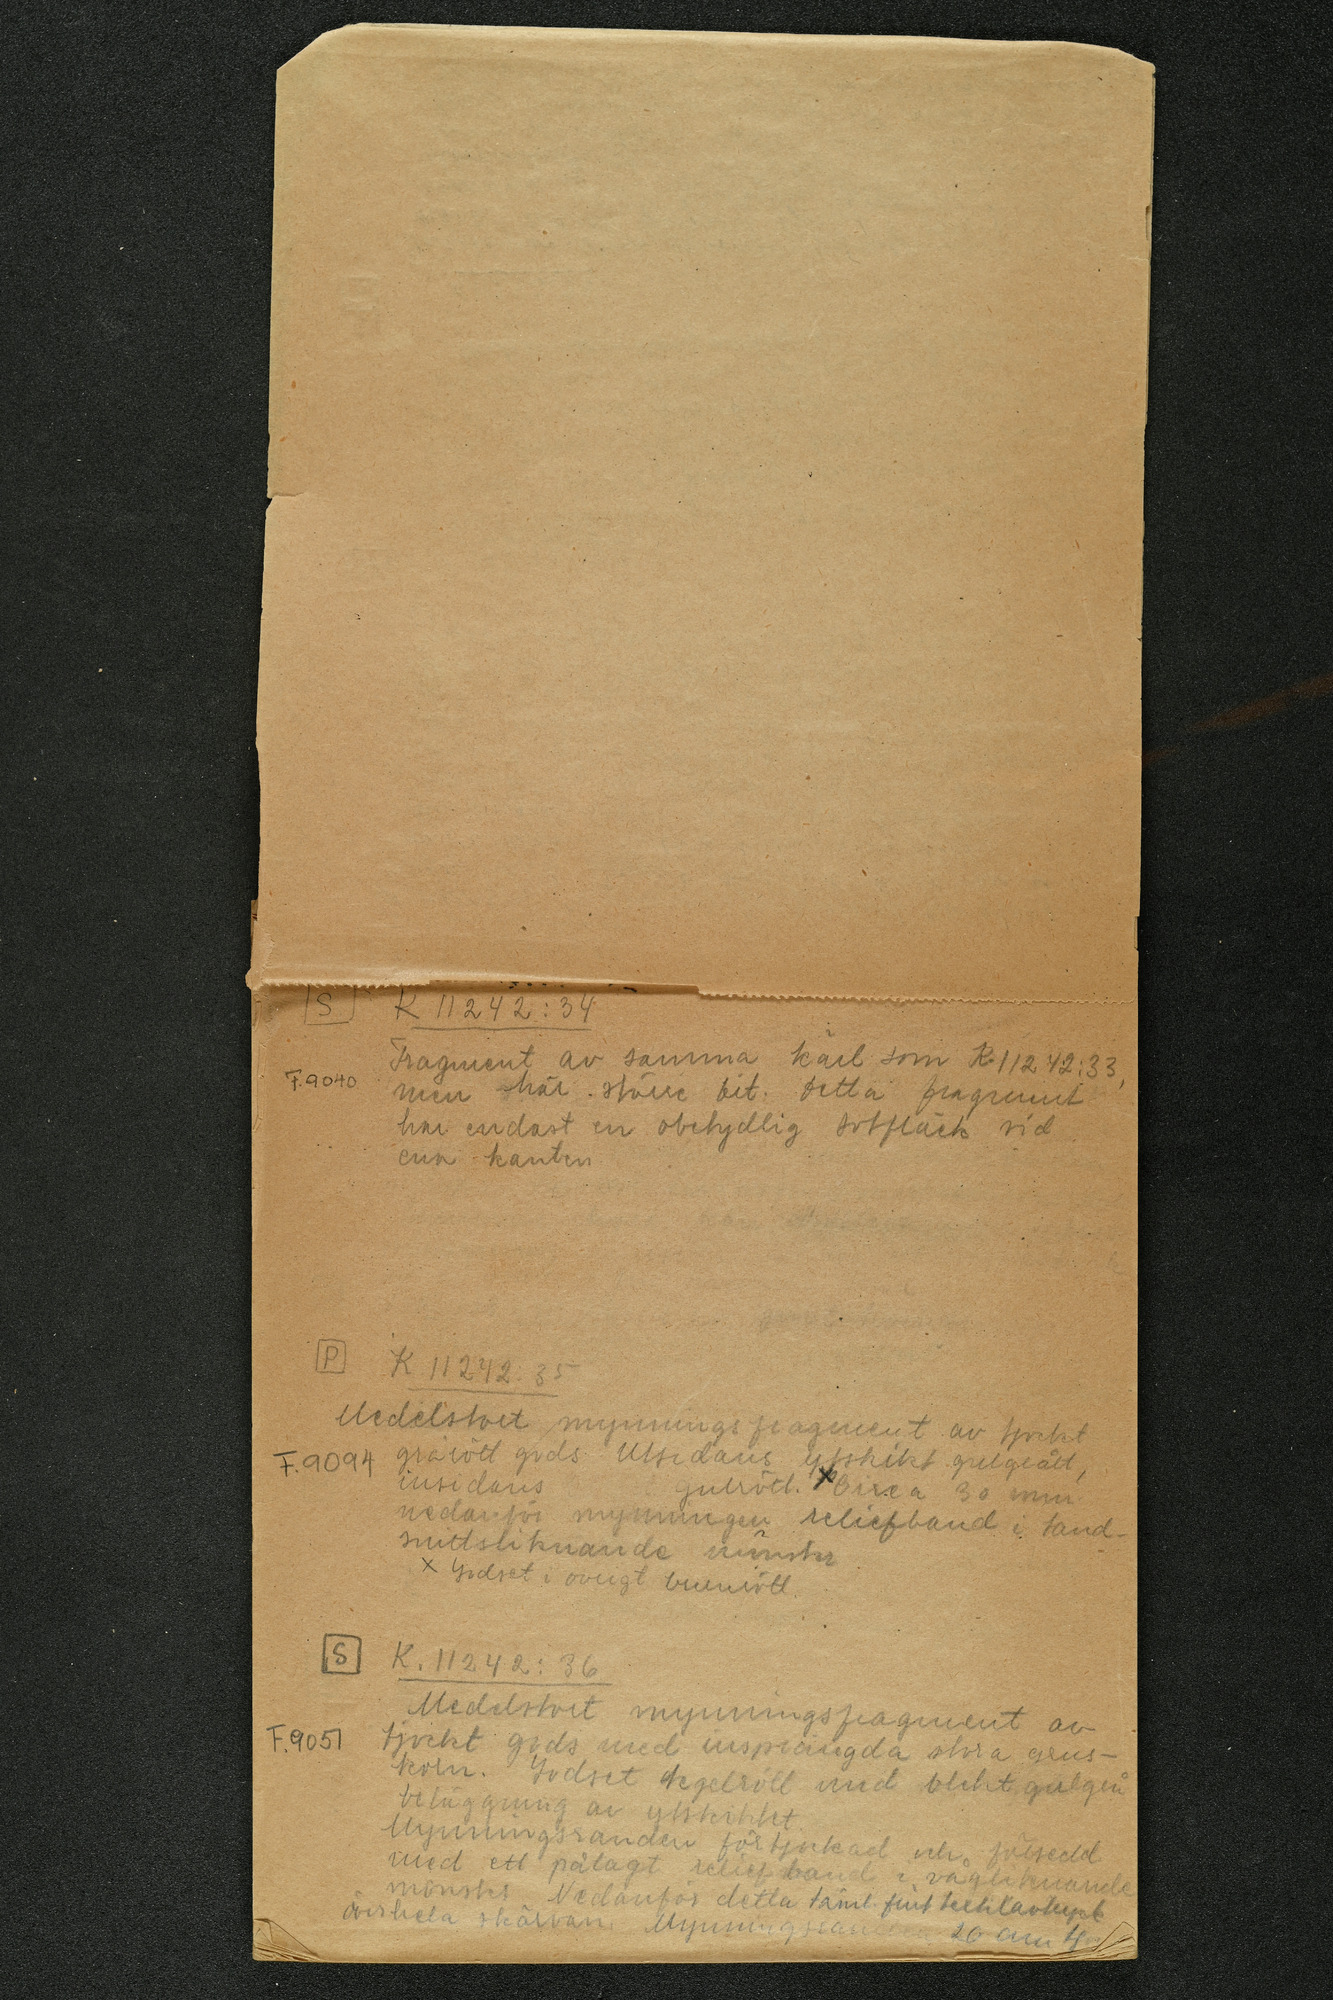 S K 11242:34
Fragment av samma kärl som K.11242:33,
F.9040 men här större bit. Detta fragment
har endast en obetydlig sotfläck vid
ena kanten
P K 11242:35
Medelstort mynningsfragment av tjockt
F.9094 grårött gods. Utsidans ytskikt gulgrått,
insidans gulrött. x Circa 30 mm
nedanför mynningen reliefband i tand-
snittsliknande mönster
x Godset i övrigt brunrött.
S K. 11242:36
Medelstort mynningsfragment av
F.9051 tjockt gods med insprängda stora grus-
korn. Godset tegelrött med blekt gulgrå
beläggning av ytskiktet.
Mynningsranden förtjockad och försedd
med ett pålagt reliefband i vågliknande
mönster. Nedanför detta täml. fint textilavtryck
över hela skärvan. 20